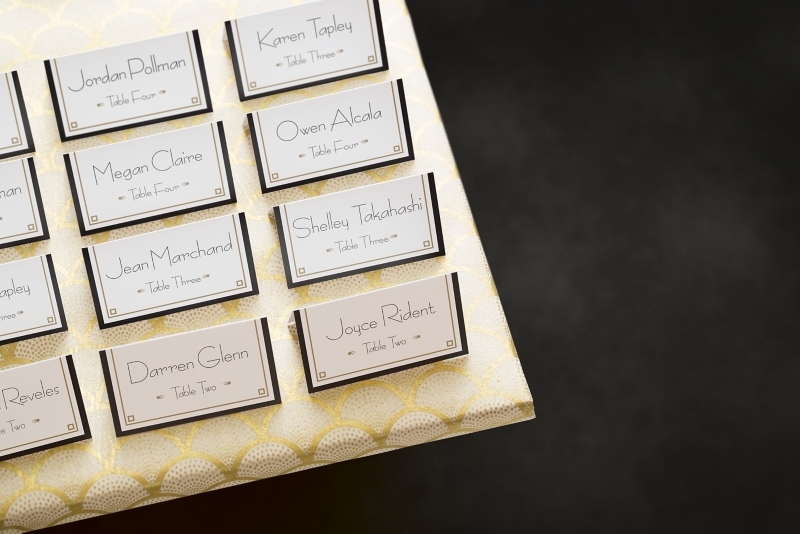 Jordan Pollman
Table Four
Karen Tapley
Table Three
Megan Claire
Table Four
Owen Alcala
Table Four
Jean Marchand
Table Three
Shelley Takahashi
Table Three
Darren Glenn
Table Two
Joyce Rident
Table Two
Reveles
Two